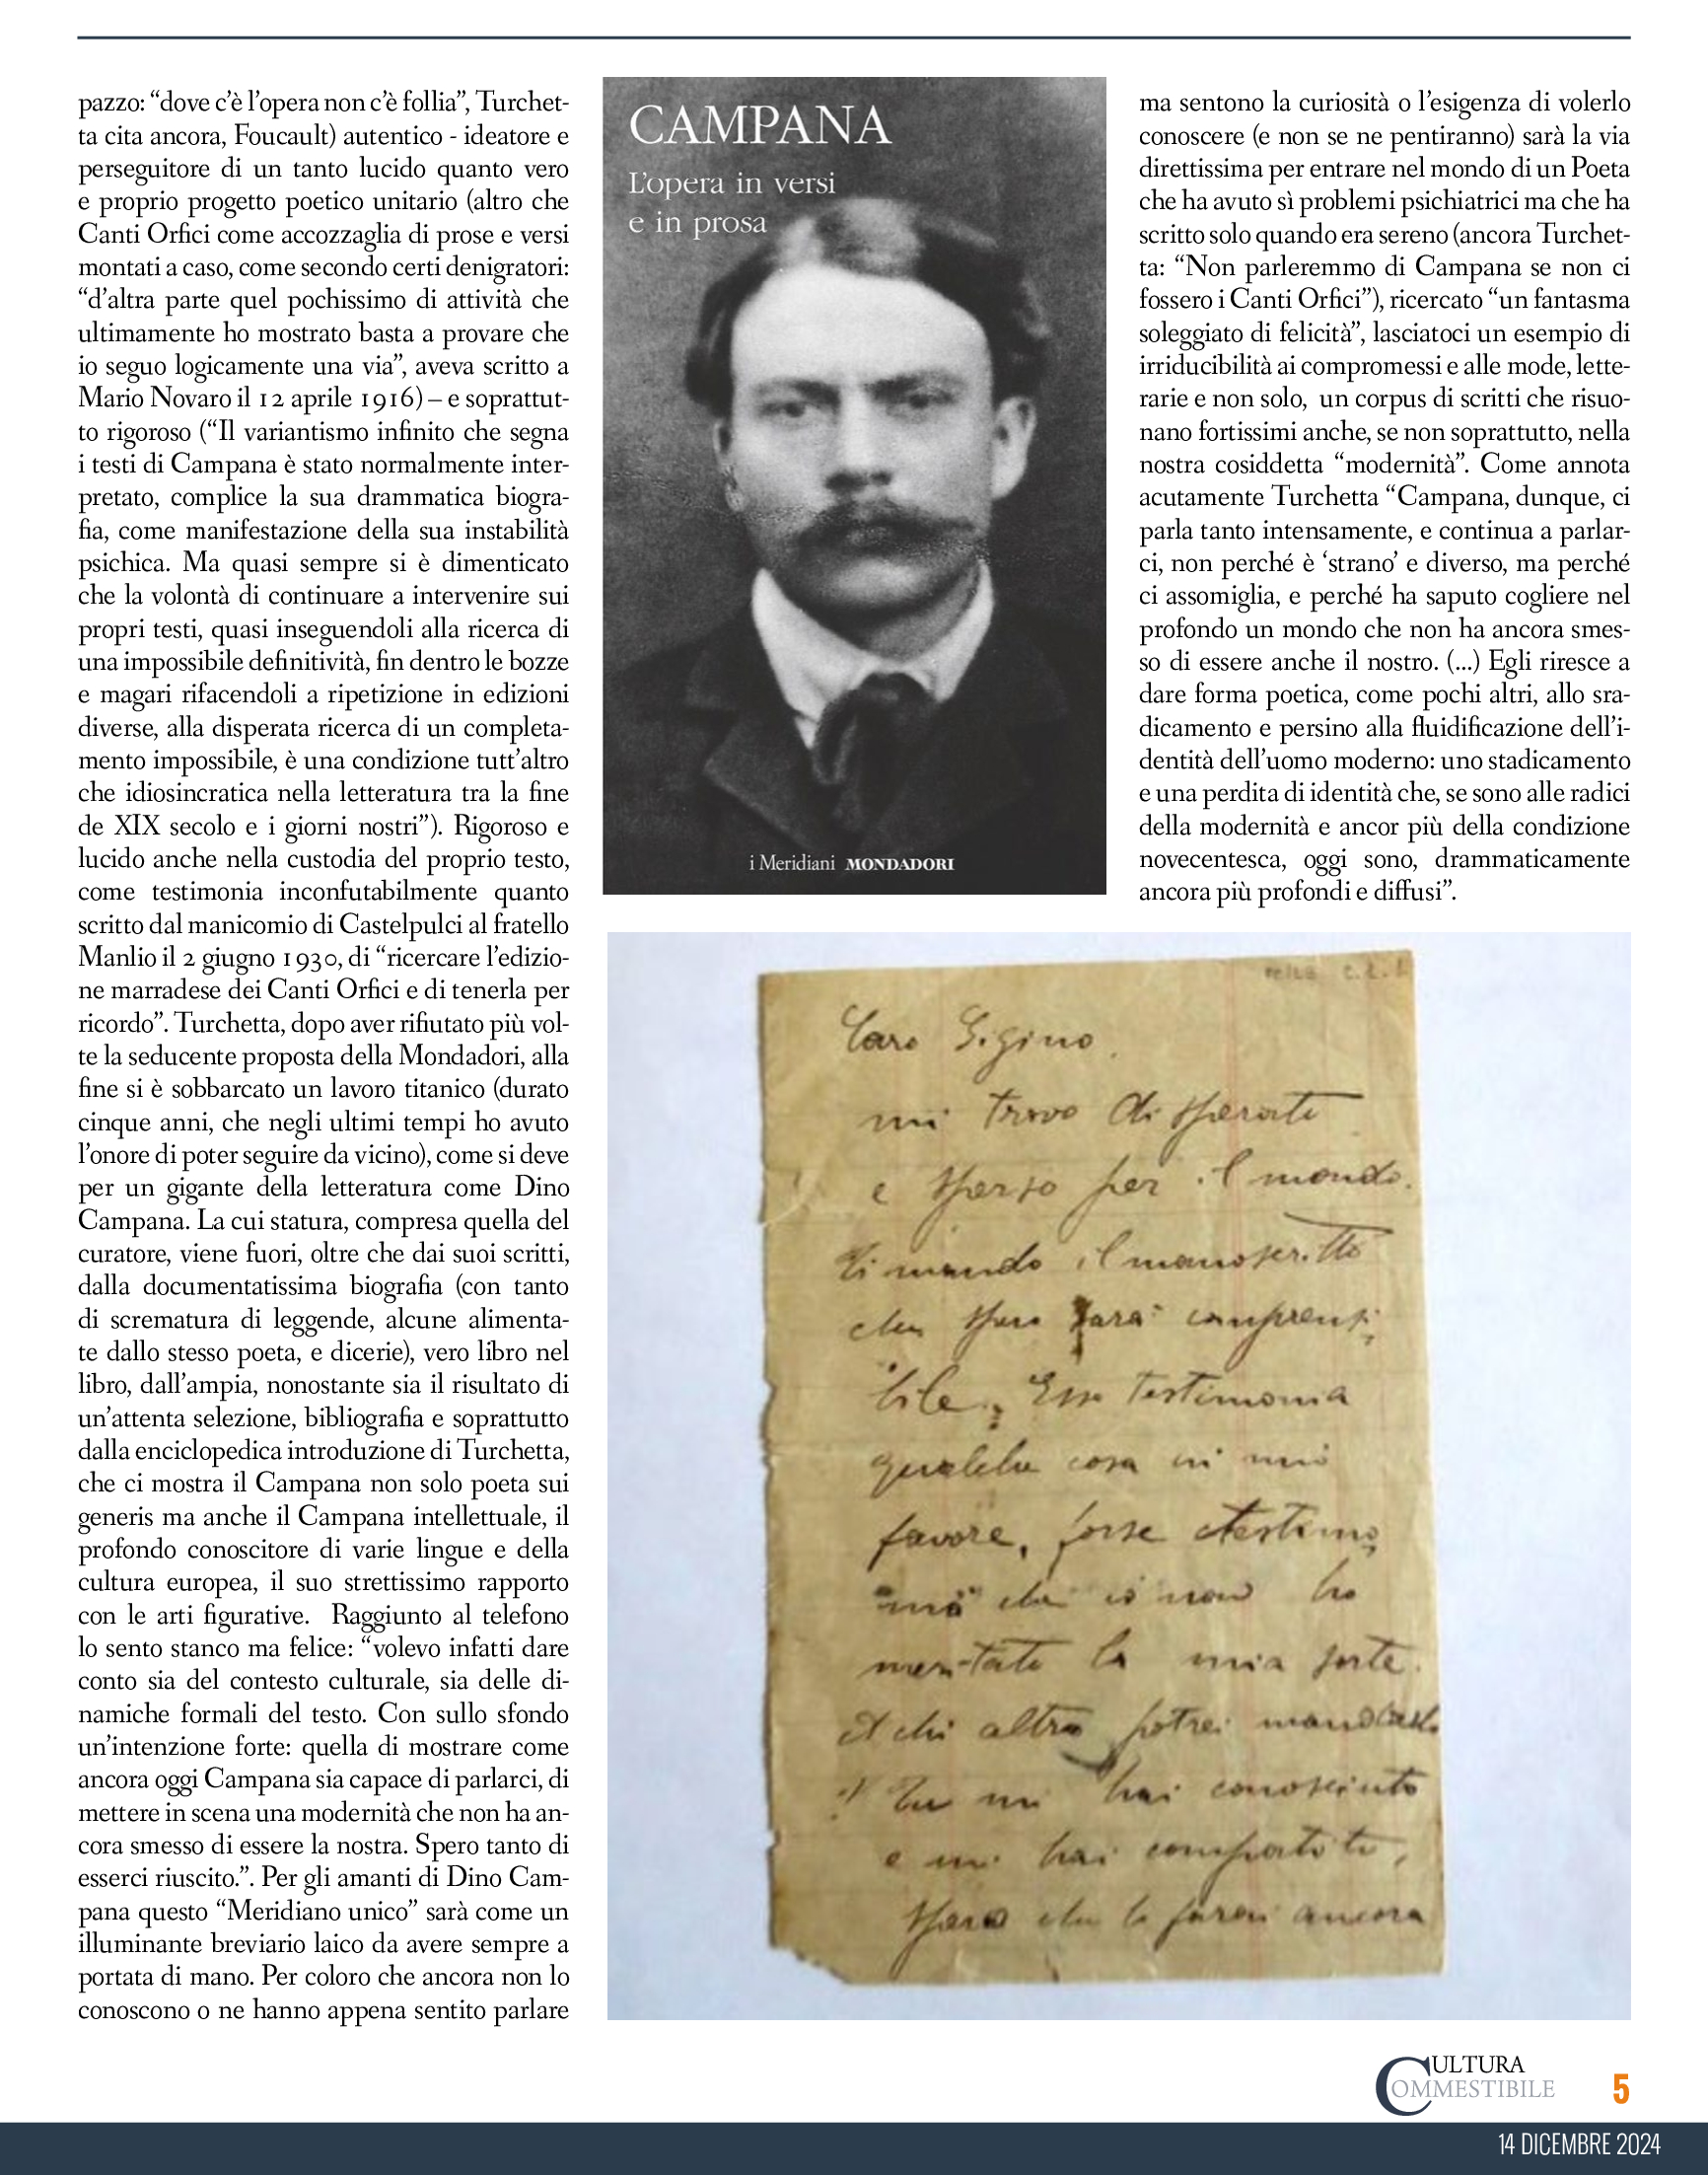 pazzo: “dove c’è l’opera non c’è follia”, Turchet-
ta cita ancora, Foucault) autentico - ideatore e
perseguitore di un tanto lucido quanto vero
e proprio progetto poetico unitario (altro che
Canti Orfici come accozzaglia di prose e versi
montati a caso, come secondo certi denigratori:
“d’altra parte quel pochissimo di attività che
ultimamente ho mostrato basta a provare che
io seguo logicamente una via”, aveva scritto a
Mario Novaro il 12 aprile 1916) – e soprattut-
to rigoroso (“Il variantismo infinito che segna
i testi di Campana è stato normalmente inter-
pretato, complice la sua drammatica biogra-
fia, come manifestazione della sua instabilità
psichica. Ma quasi sempre si è dimenticato
che la volontà di continuare a intervenire sui
propri testi, quasi inseguendoli alla ricerca di
una impossibile definitività, fin dentro le bozze
e magari rifacendoli a ripetizione in edizioni
diverse, alla disperata ricerca di un completa-
mento impossibile, è una condizione tutt’altro
che idiosincratica nella letteratura tra la fine
de XIX secolo e i giorni nostri”). Rigoroso e
lucido anche nella custodia del proprio testo,
come testimonia inconfutabilmente quanto
scritto dal manicomio di Castelpulci al fratello
Manlio il 2 giugno 1930, di “ricercare l’edizio-
ne marradese dei Canti Orfici e di tenerla per
ricordo”. Turchetta, dopo aver rifiutato più vol-
te la seducente proposta della Mondadori, alla
fine si è sobbarcato un lavoro titanico (durato
cinque anni, che negli ultimi tempi ho avuto
l’onore di poter seguire da vicino), come si deve
per un gigante della letteratura come Dino
Campana. La cui statura, compresa quella del
curatore, viene fuori, oltre che dai suoi scritti,
dalla documentatissima biografia (con tanto
di scrematura di leggende, alcune alimenta-
te dallo stesso poeta, e dicerie), vero libro nel
libro, dall’ampia, nonostante sia il risultato di
un’attenta selezione, bibliografia e soprattutto
dalla enciclopedica introduzione di Turchetta,
che ci mostra il Campana non solo poeta sui
generis ma anche il Campana intellettuale, il
profondo conoscitore di varie lingue e della
cultura europea, il suo strettissimo rapporto
con le arti figurative. Raggiunto al telefono
lo sento stanco ma felice: “volevo infatti dare
conto sia del contesto culturale, sia delle di-
namiche formali del testo. Con sullo sfondo
un’intenzione forte: quella di mostrare come
ancora oggi Campana sia capace di parlarci, di
mettere in scena una modernità che non ha an-
cora smesso di essere la nostra. Spero tanto di
esserci riuscito.”. Per gli amanti di Dino Cam-
pana questo “Meridiano unico” sarà come un
illuminante breviario laico da avere sempre a
portata di mano. Per coloro che ancora non lo
conoscono o ne hanno appena sentito parlare
CAMPANA
L’opera in versi
e in prosa
i Meridiani MONDADORI
ma sentono la curiosità o l’esigenza di volerlo
conoscere (e non se ne pentiranno) sarà la via
direttissima per entrare nel mondo di un Poeta
che ha avuto sì problemi psichiatrici ma che ha
scritto solo quando era sereno (ancora Turchet-
ta: “Non parleremmo di Campana se non ci
fossero i Canti Orfici”), ricercato “un fantasma
soleggiato di felicità”, lasciatoci un esempio di
irriducibilità ai compromessi e alle mode, lette-
rarie e non solo, un corpus di scritti che risuo-
nano fortissimi anche, se non soprattutto, nella
nostra cosiddetta “modernità”. Come annota
acutamente Turchetta “Campana, dunque, ci
parla tanto intensamente, e continua a parlar-
ci, non perché è ‘strano’ e diverso, ma perché
ci assomiglia, e perché ha saputo cogliere nel
profondo un mondo che non ha ancora smes-
so di essere anche il nostro. (...) Egli riresce a
dare forma poetica, come pochi altri, allo sra-
dicamento e persino alla fluidificazione dell’i-
dentità dell’uomo moderno: uno stadicamento
e una perdita di identità che, se sono alle radici
della modernità e ancor più della condizione
novecentesca, oggi sono, drammaticamente
ancora più profondi e diffusi”.
Caro Gigino.
mi trovo disperato
e sperso per il mondo.
Ti mando il manoscritto
che spero sarà comprensi
bile. Esso testimonia
qualche cosa in mio
favore, forse testimo
nia che io non ho
meritato la mia sorte.
A chi altro potrei mandarlo
? Tu mi hai conosciuto
e mi hai compatito,
spero che lo farai ancora
CULTURA
COMMESTIBILE
5
14 DICEMBRE 2024